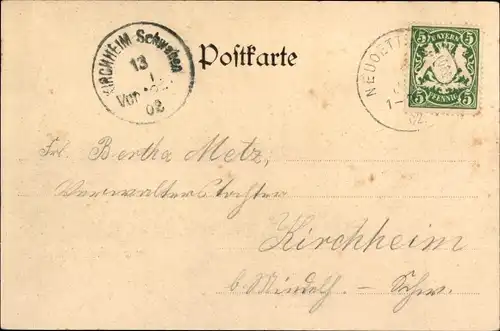 KIRCHHEIM Schwaben
13
1
Vor
02
Postkarte
NEUOETT
1-
02.
BAYERN
5 5
PFENNIG
Frl. Bertha Metz,
Verwalterstochter
Kirchheim
b. Mindelh. - Schw.